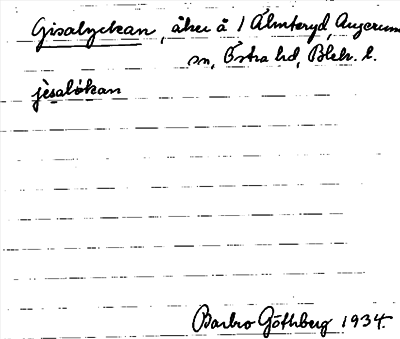 Gisalyckan, åker å 1 Älmteryd, Augerum
sn, Östra hd, Blek. l.
jèsalókan
Barbro Göthberg 1934.